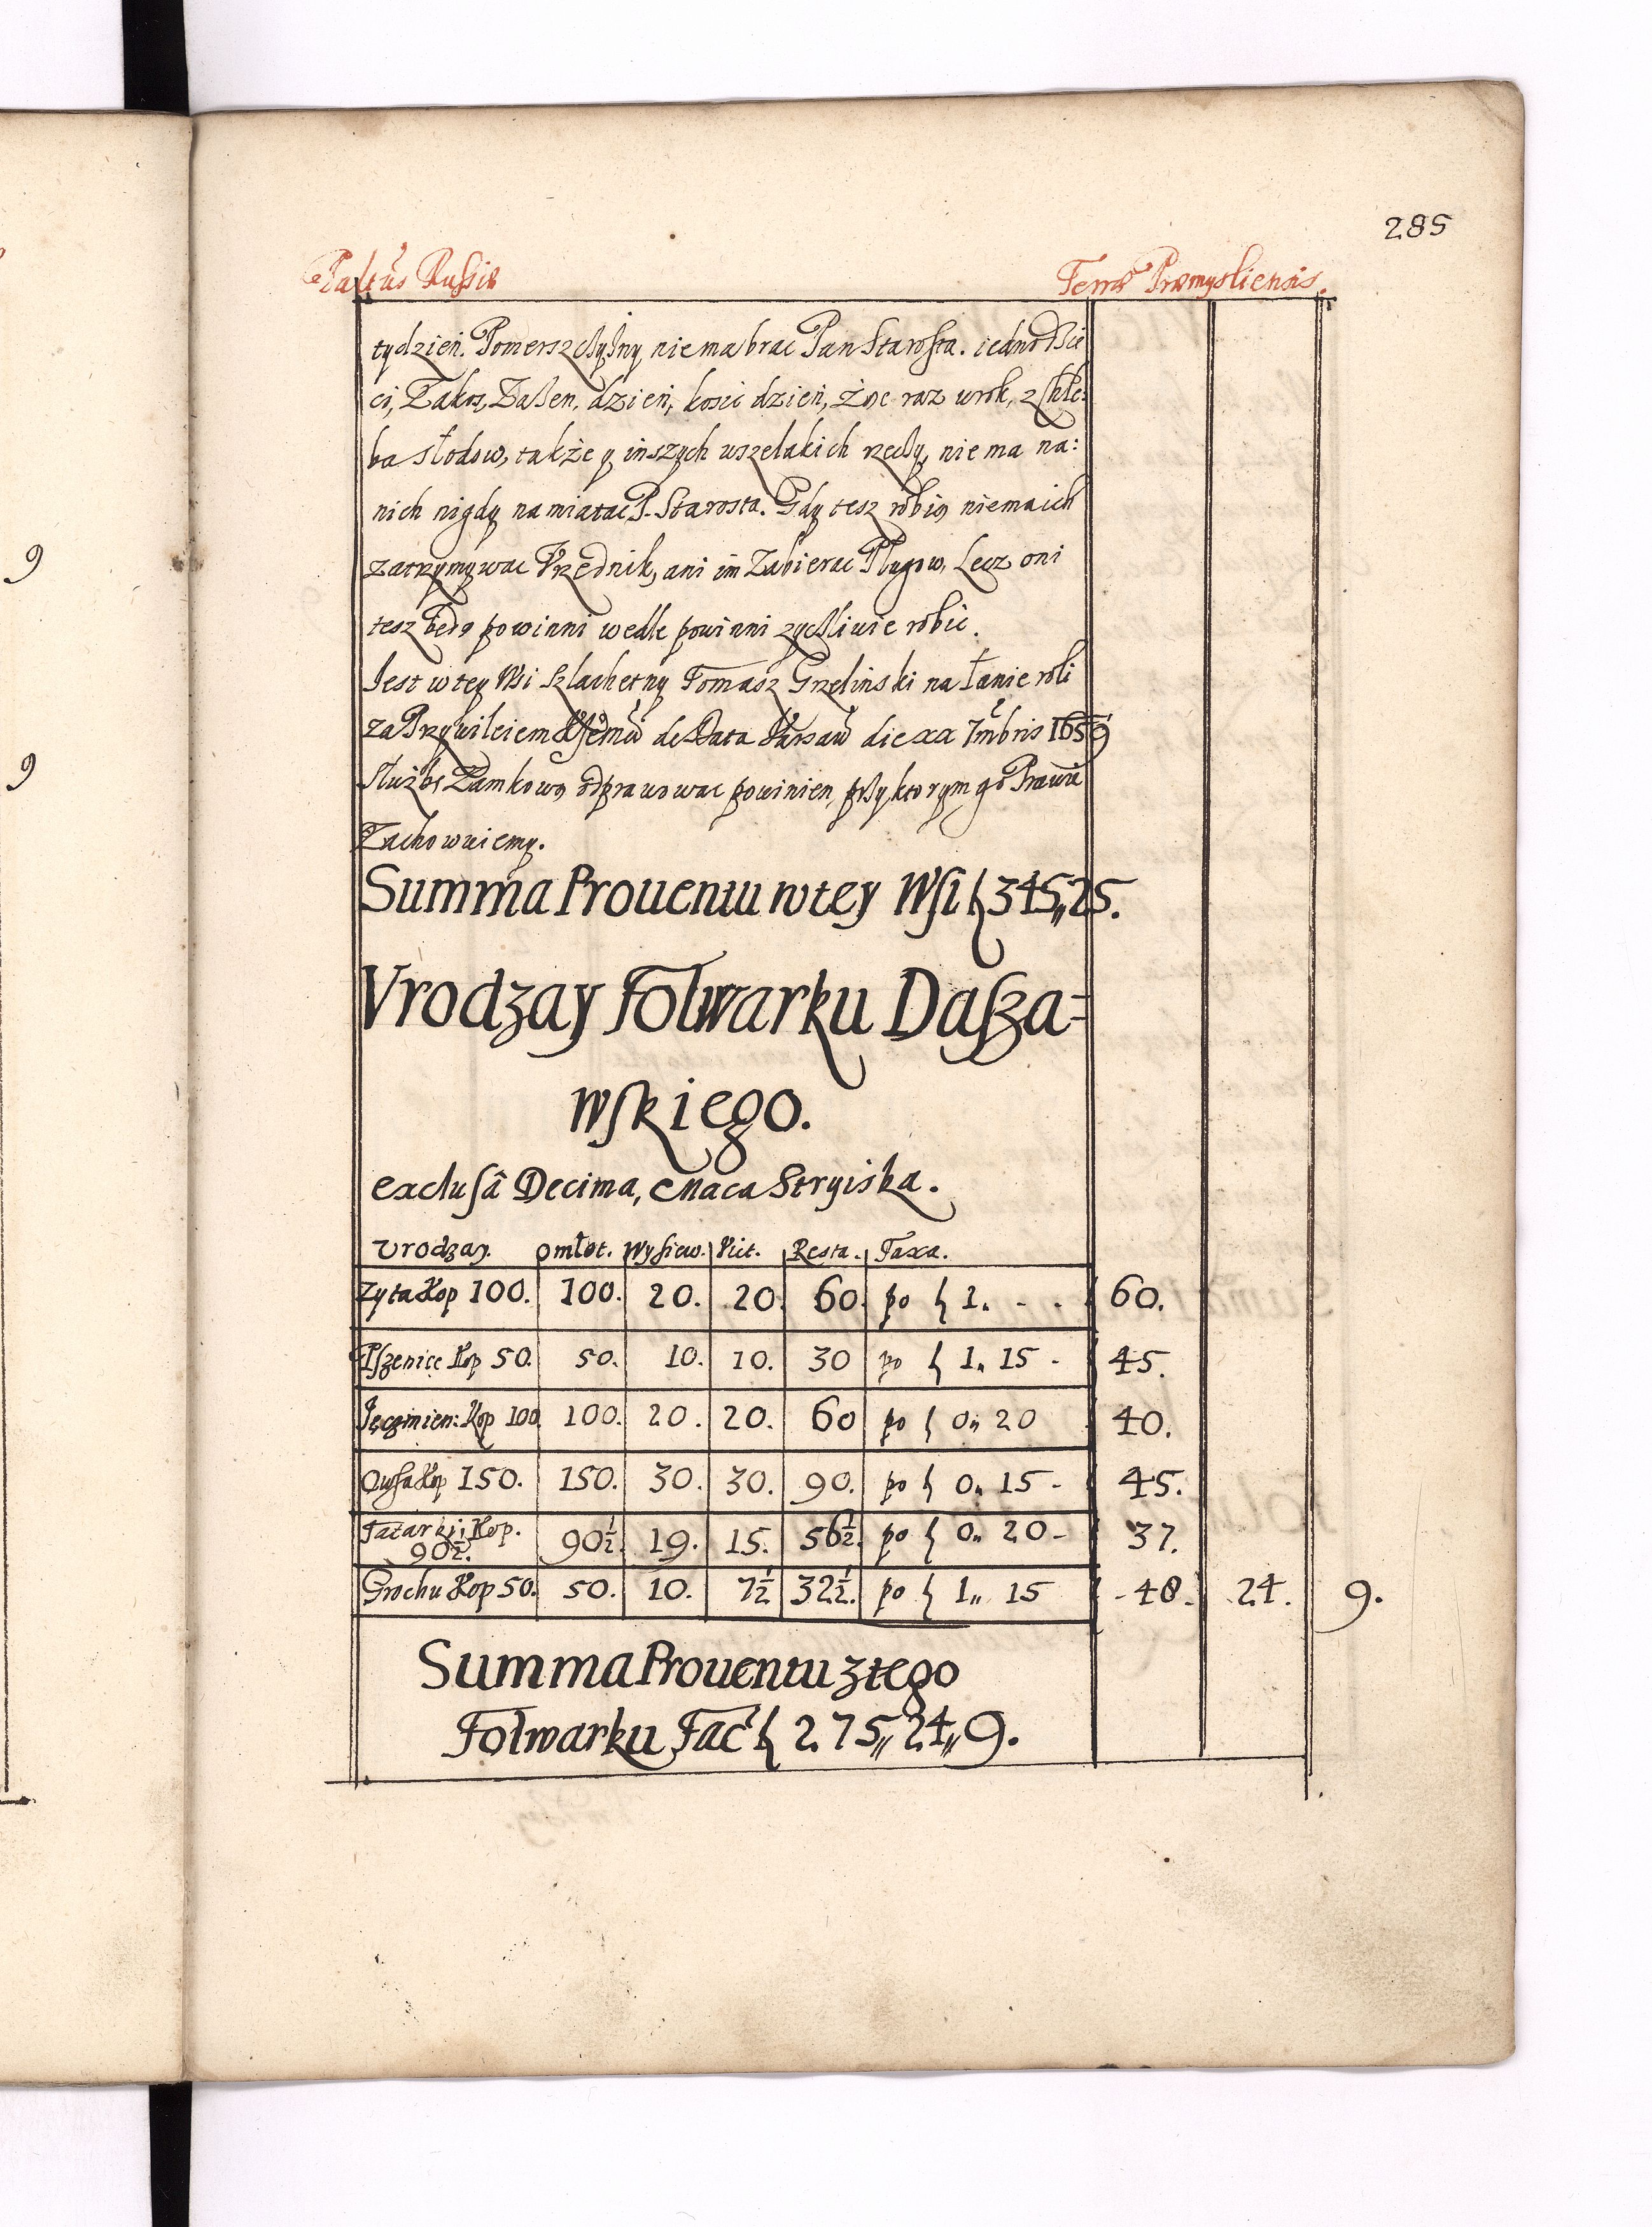 285
Palatus Russiæ Terræ Præmysliensis.
tydzień. Pomerszczyzny nie ma brac Pan Starosta.
ci, Zakos, dzień, kosić dzień, Żąc raz w rok, z Chle:
ba słodow, także y inszych wszelakich rzeczy, nie ma na:
nich nigdy namiatac P. Starosta. Gdy tesz robią niema ich
zatrzymywac Vrzednik, ani im Zabierac Pługow, Lecz oni
tesz będą powinni wedle powinni zyczliwie robic.
Jest w tey Wsi szlachetny Tomasz Grzelinski na łanie roli
za Przywileiem de Data Varsaw die xx 7mbris 1659
Służbę Zamkową odprawowac powinien, przy ktorym go Prawie
Zachowuiemy.
Summa Prouentu w tey Wsi f 345,, 25.
Vrodzay Folwarku Dasza=
wskiego.
exclusâ Decima, Maca Stryiska.
Vrodzay. omłot. Wysiew. Vict. Resta. Taxa.
Zyta Kop 100. 100. 20. 20. 60. po f 1. - . 60.
Pszenice Kop 50. 50. 10. 10. 30 po f 1,, 15 - 45.
Jęczmien: Kop 100. 100. 20. 20. 60 po f 0,, 20 40.
Owsa Kop 150. 150. 30. 30. 90. po f 0,, 15 - 45.
Tatarki: Kop. 90½. 90½. 19. 15. 56½. po f 0,, 20 - 37.
Grochu Kop 50. 50. 10. 7½ 32½. po f 1,, 15 - 48. 24. 9.
Summa Prouentu z tego
Folwarku Fac f 275,, 24,, 9.
9
9